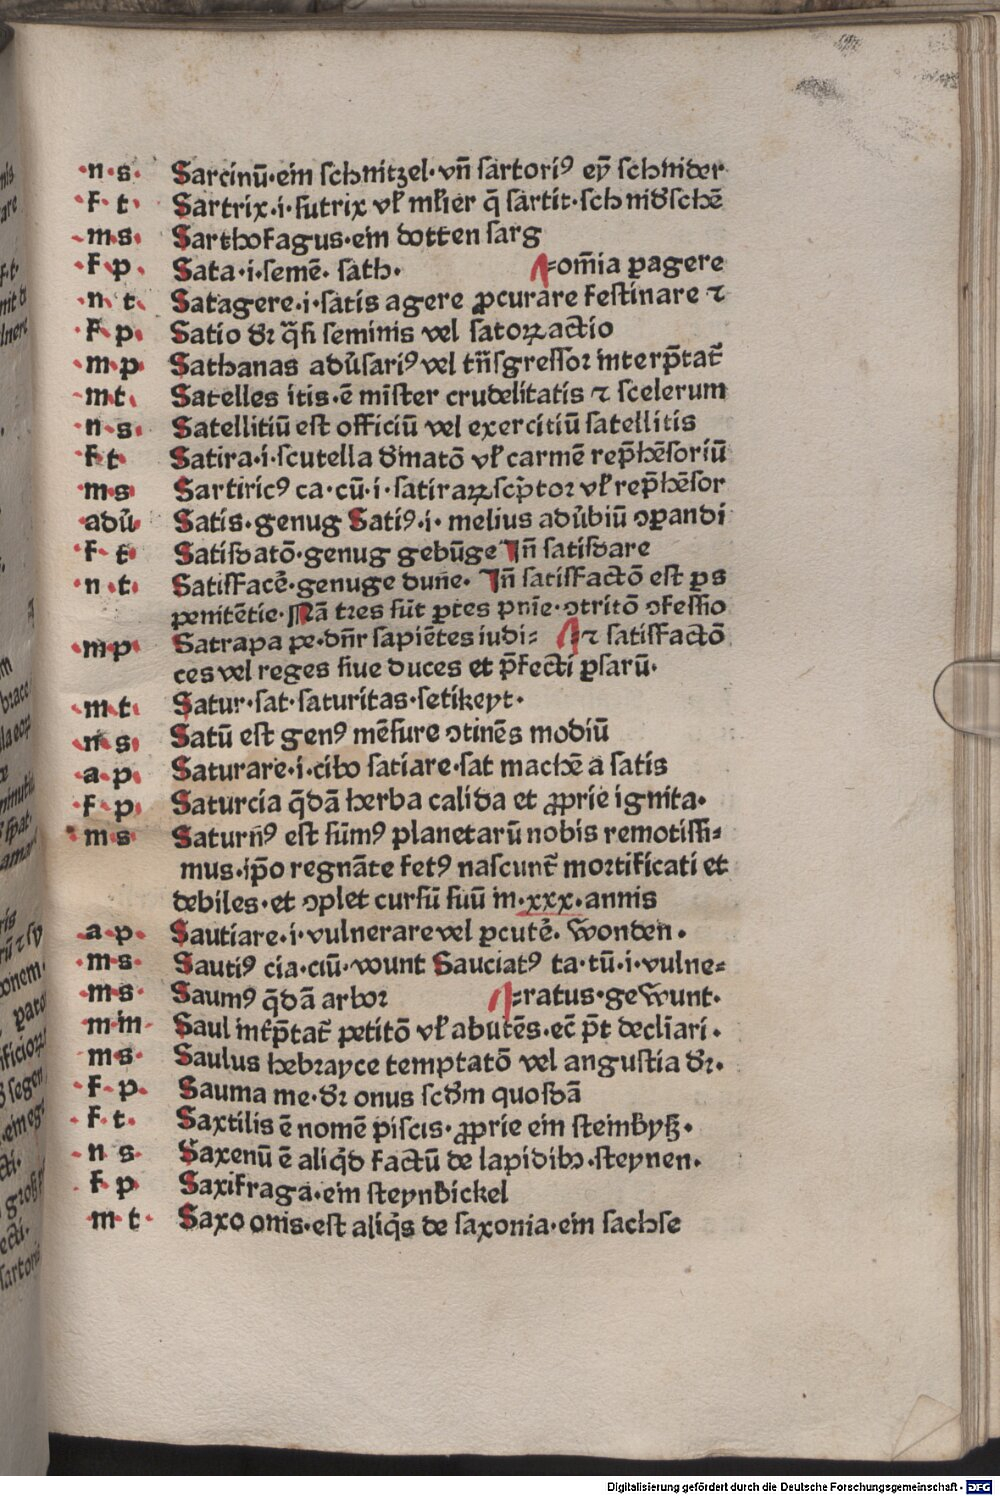 ·n·s· Sarcinū·ein schnitzel·vn̄ sartoriꝰ eȳ schnider
·f·t· Sartrix·i·sutrix vł mł'ier q̄ sartit·schnid'schē
·m·s· Sarthofagus·ein dotten sarg
·f·p· Sata·i·semē·sath· ⸗om̄ia ꝑagere
·n·t· Satagere·i·satis agere ꝓcurare festinare ⁊
·f·p· Satio dr̄ q̄si seminis vel satoꝝ actio
·m·p· Sathanas adūsariꝰ vel tn̄sgressor interp̄tat̄
·m·t· Satelles itis·ē mister crudelitatis ⁊ scelerum
·n·s· Satellitiū est officiū vel exercitiū satellitis
·f·t· Satira·i·scutella d'matō vł carmē rep̄hēsoriū
·m·s· Sartiricꝰ ca·cū·i·satiraꝝ scp̄tor vł rep̄hēsor
adū Satis·genug Satiꝰ·i·melius adūbiū ꝯꝑandi
·f·t· Satisdatō·genug gebūge In̄ satisdare
·n·t· Satisfacē·genuge dune· In̄ satisfactō est ꝑs
penitētie·Nā tres sūt ꝑtes pn̄ie·ꝯtritō ꝯfessio
·m·p· Satrapa pe·dn̄r sapiētes iudi⸗ ⸗⁊ satisfactō
ces vel reges siue duces et p̄fecti ꝑsarū·
·m·t· Satur·sat·saturitas·setikeyt·
·n·s· Satū est genꝰ mēsure ꝯtinēs modiū
·a·p· Saturare·i·cibo satiare·sat machē a satis
·f·p· Saturcia q̄dā herba calida et ꝓprie ignita·
·m·s· Saturn̄ꝰ est sūmꝰ planetarū nobis remotissi⸗
mus·ip̄o regnāte fetꝰ nascunt̄ mortificati et
debiles·et ꝯplet cursū suū in·xxx·annis
·a·p· Sautiare·i·vulnerare vel ꝑcutē·wonden·
·m·s· Sautiꝰ cia·ciū·wunt Sauciatꝰ ta·tū·i·vulne⸗
·m·s· Saumꝰ q̄dā arbor ⸗ratus·gewunt·
·m·in· Saul int̄p̄tat̄ petitō vł abutēs·ec̄ p̄t declīari·
·m·s· Saulus hebrayce temptatō vel angustia dr̄·
·f·p· Sauma me·dr̄ onus scd̄m quosdā
·f·t· Saxtilis ē nomē piscis·ꝓprie ein steinbyß·
·n·s· Saxenū ē aliq̄d factū de lapidibꝫ·steynen·
·f·p· Saxifraga·ein steynbickel
·m·t· Saxo onis·est aliq̄s de saxonia·ein sachse
Digitalisierung gefördert durch die Deutsche Forschungsgemeinschaft · DFG